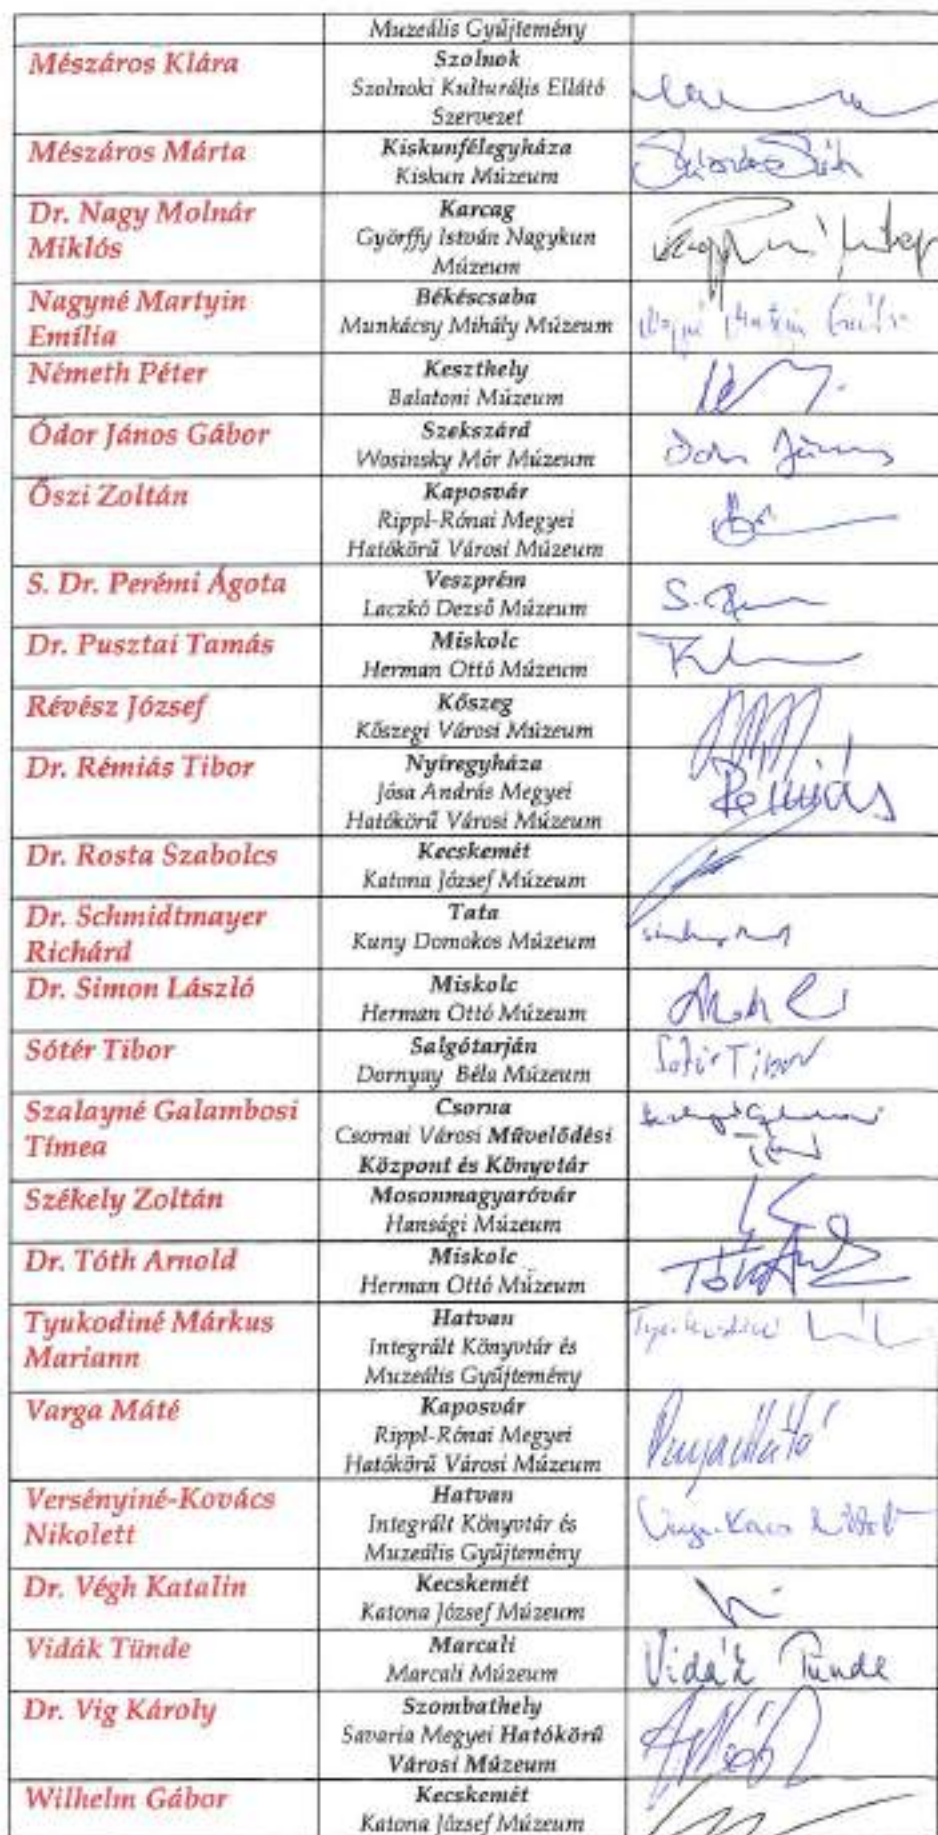 Muzeális Gyűjtemény
Mészáros Klára
Szolnok
Szolnoki Kulturális Ellátó
Szervezet
Mészáros Márta
Kiskunfélegyháza
Kiskun Múzeum
Dr. Nagy Molnár
Miklós
Karcag
Györffy István Nagykun
Múzeum
Nagyné Martyin
Emília
Békéscsaba
Munkácsy Mihály Múzeum
Németh Péter
Keszthely
Balatoni Múzeum
Ódor János Gábor
Szekszárd
Wosinsky Mór Múzeum
Őszi Zoltán
Kaposvár
Rippl-Rónai Megyei
Hatókörű Városi Múzeum
S. Dr. Perémi Ágota
Veszprém
Laczkó Dezső Múzeum
Dr. Pusztai Tamás
Miskolc
Herman Ottó Múzeum
Révész József
Kőszeg
Kőszegi Városi Múzeum
Dr. Rémiás Tibor
Nyíregyháza
Jósa András Megyei
Hatókörű Városi Múzeum
Rémiás
Dr. Rosta Szabolcs
Kecskemét
Katona József Múzeum
Dr. Schmidtmayer
Richárd
Tata
Kuny Domokos Múzeum
Dr. Simon László
Miskolc
Herman Ottó Múzeum
Sótér Tibor
Salgótarján
Dornyay Béla Múzeum
Sótér Tibor
Szalayné Galambosi
Tímea
Csorna
Csornai Városi Művelődési
Központ és Könyvtár
Székely Zoltán
Mosonmagyaróvár
Hansági Múzeum
Dr. Tóth Arnold
Miskolc
Herman Ottó Múzeum
Tyukodiné Márkus
Mariann
Hatvan
Integrált Könyvtár és
Muzeális Gyűjtemény
Varga Máté
Kaposvár
Rippl-Rónai Megyei
Hatókörű Városi Múzeum
Varga Máté
Versényiné-Kovács
Nikolett
Hatvan
Integrált Könyvtár és
Muzeális Gyűjtemény
Dr. Végh Katalin
Kecskemét
Katona József Múzeum
Vidák Tünde
Marcali
Marcali Múzeum
Vidák Tünde
Dr. Vig Károly
Szombathely
Savaria Megyei Hatókörű
Városi Múzeum
Wilhelm Gábor
Kecskemét
Katona József Múzeum